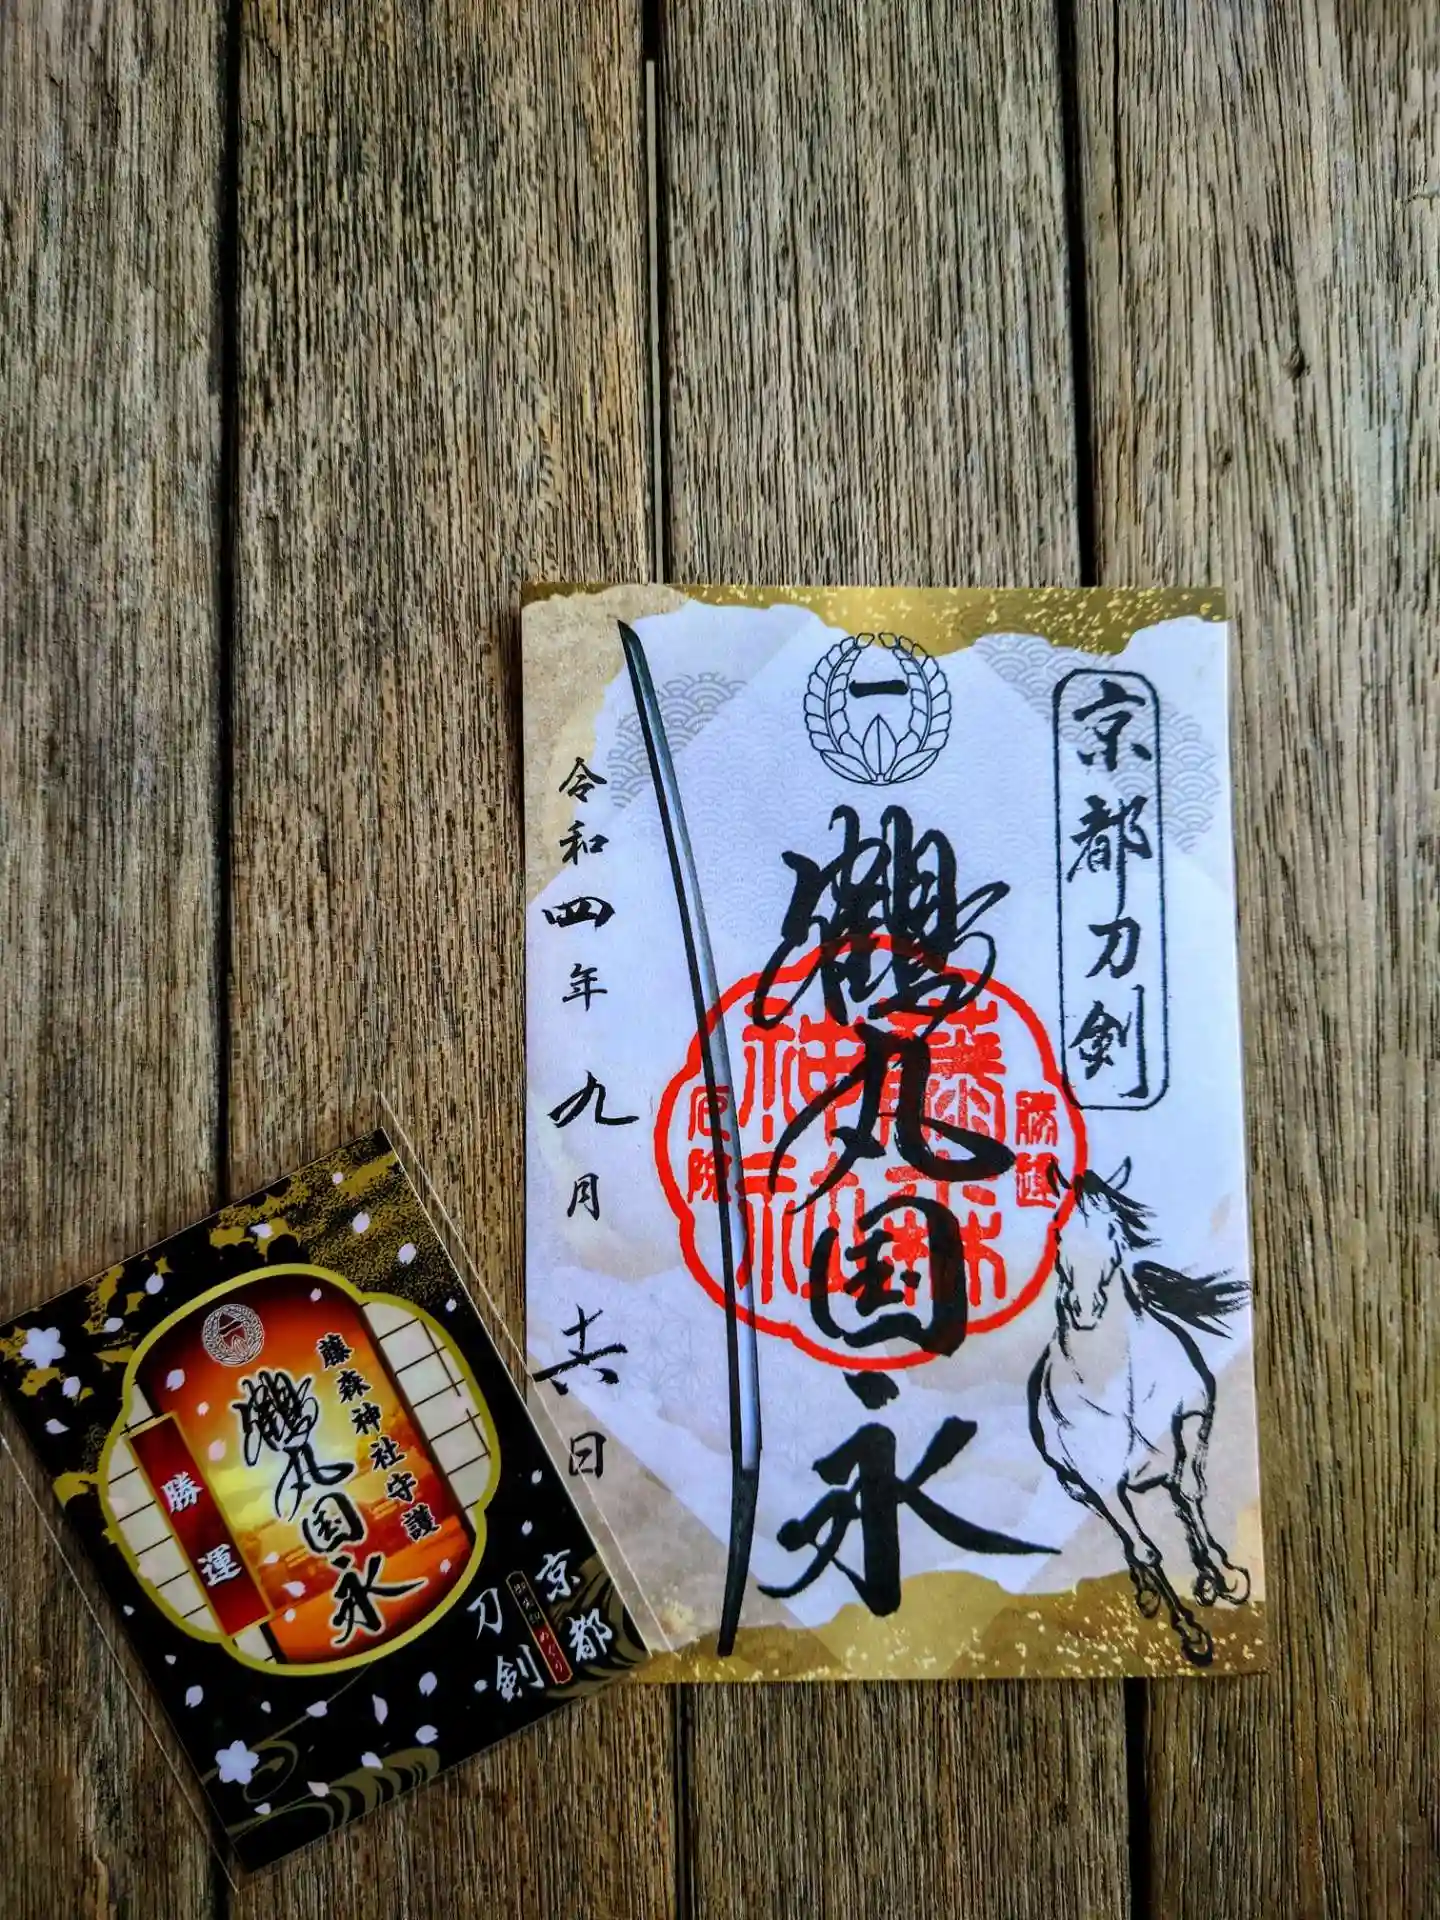 京都刀剣
一
鶴丸国永
藤森
神社
勝運
令和四年九月十六日
藤森神社守護
鶴丸国永
勝運
京都
刀剣
御朱印めぐり